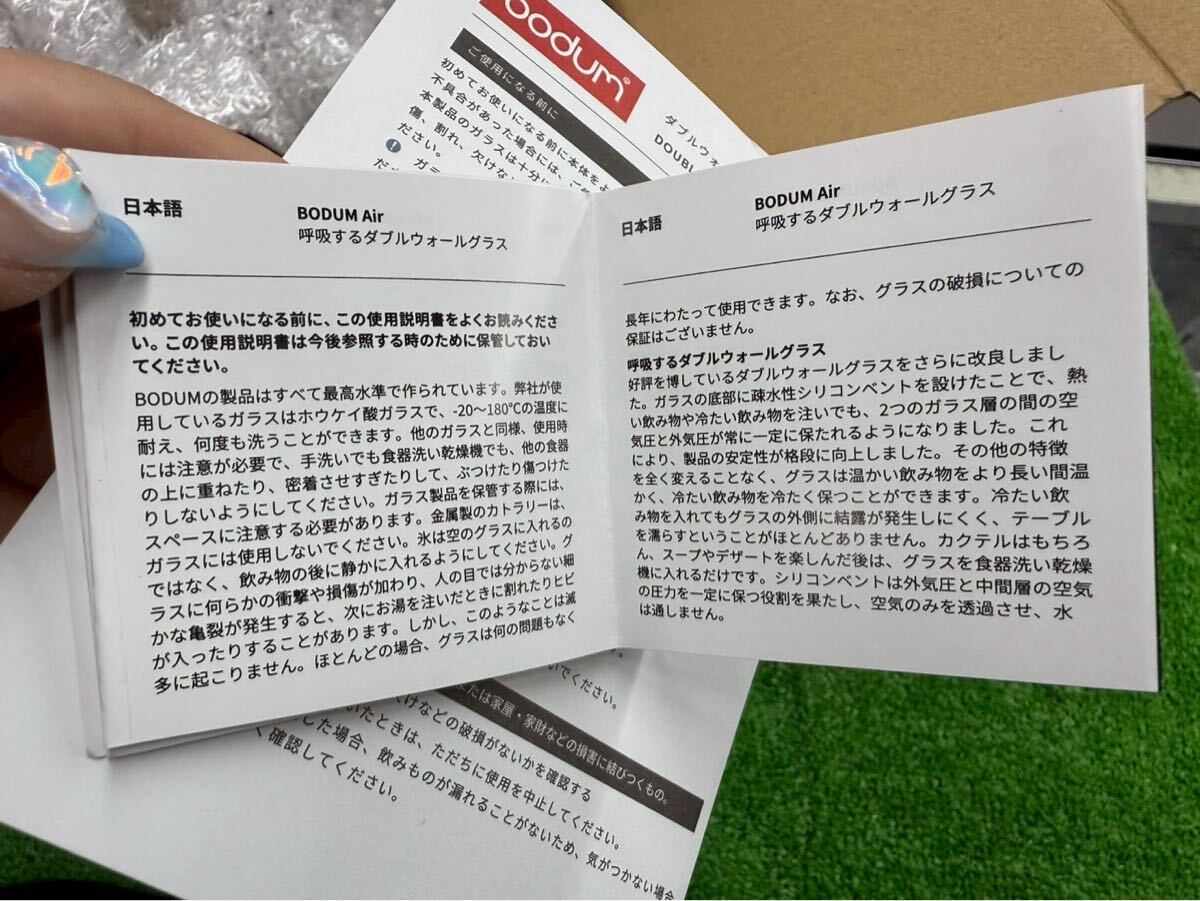 bodum
ご使用になる前に
初めてお使いになる前に本体をよ
不具合があった場合には、ご
本製品のガラスは十分に
傷、割れ、欠けな
ださい。
ガラ
ダブルウォ
DOUBL
日本語
BODUM Air
呼吸するダブルウォールグラス
初めてお使いになる前に、この使用説明書をよくお読みくださ
い。この使用説明書は今後参照する時のために保管しておい
てください。
BODUMの製品はすべて最高水準で作られています。弊社が使
用しているガラスはホウケイ酸ガラスで、-20〜180℃の温度に
耐え、何度も洗うことができます。他のガラスと同様、使用時
には注意が必要で、手洗いでも食器洗い乾燥機でも、他の食器
の上に重ねたり、密着させすぎたりして、ぶつけたり傷つけた
りしないようにしてください。ガラス製品を保管する際には、
スペースに注意する必要があります。金属製のカトラリーは、
ガラスには使用しないでください。氷は空のグラスに入れるの
ではなく、飲み物の後に静かに入れるようにしてください。グ
ラスに何らかの衝撃や損傷が加わり、人の目では分からない細
かな亀裂が発生すると、次にお湯を注いだときに割れたりヒビ
が入ったりすることがあります。しかし、このようなことは滅
多に起こりません。ほとんどの場合、グラスは何の問題もなく
日本語
BODUM Air
呼吸するダブルウォールグラス
長年にわたって使用できます。なお、グラスの破損についての
保証はございません。
呼吸するダブルウォールグラス
好評を博しているダブルウォールグラスをさらに改良しまし
た。ガラスの底部に疎水性シリコンベントを設けたことで、熱
い飲み物や冷たい飲み物を注いでも、2つのガラス層の間の空
気圧と外気圧が常に一定に保たれるようになりました。これ
により、製品の安定性が格段に向上しました。その他の特徴
を全く変えることなく、グラスは温かい飲み物をより長い間温
かく、冷たい飲み物を冷たく保つことができます。冷たい飲
み物を入れてもグラスの外側に結露が発生しにくく、テーブル
を濡らすということがほとんどありません。カクテルはもちろ
ん、スープやデザートを楽しんだ後は、グラスを食器洗い乾燥
機に入れるだけです。シリコンベントは外気圧と中間層の空気
の圧力を一定に保つ役割を果たし、空気のみを透過させ、水
は通しません。
いでください。
たは家屋・家財などの損害に結びつくもの。
けなどの破損がないかを確認する
いたときは、ただちに使用を中止してください。
した場合、飲みものが漏れることがないため、気がつかない場合
確認してください。